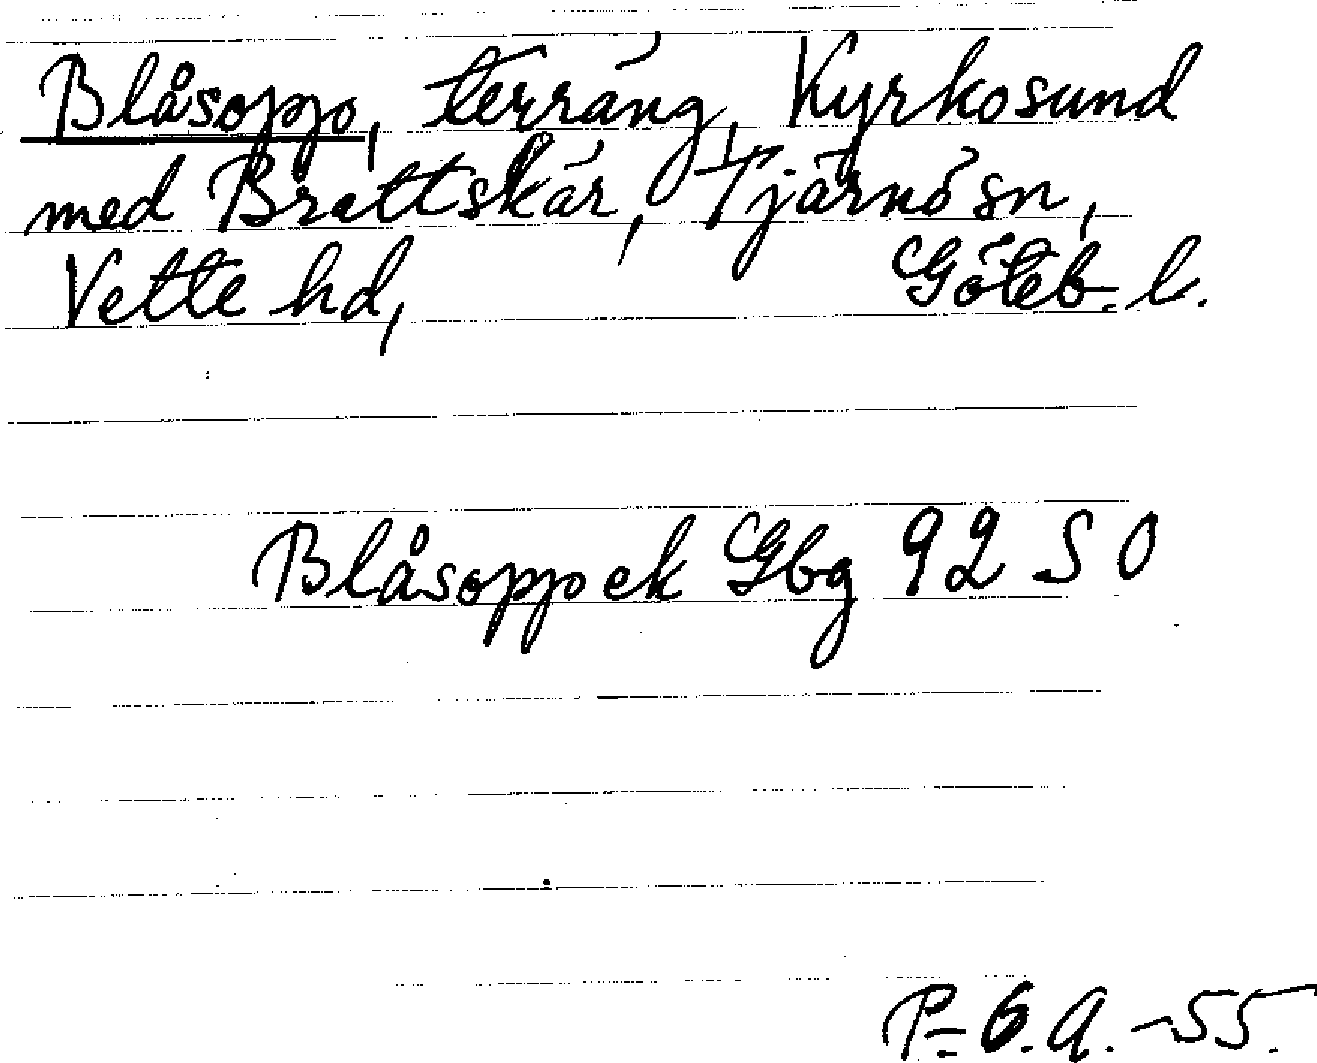 Blåsopp, terräng, Kyrkosund
med Brattskär, Tjärnö sn,
Vette hd, Göteb. l.
Blåsopp ek Gbg 92 SO
P. G. A. -55.